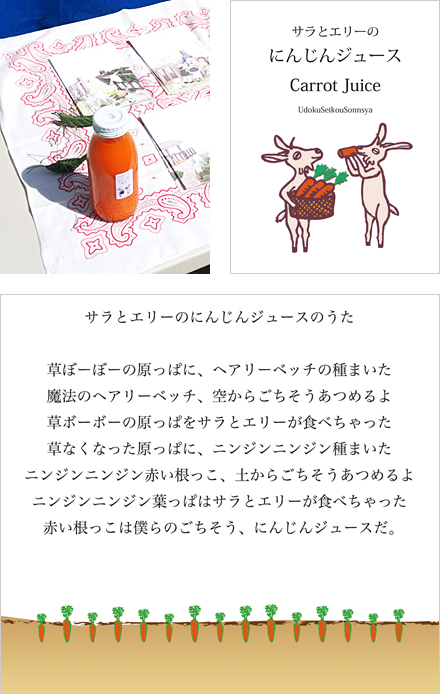 サラとエリーの
にんじんジュース
Carrot Juice
UdokuSeikouSonnsya
サラとエリーのにんじんジュースのうた
草ぼーぼーの原っぱに、ヘアリーベッチの種まいた
魔法のヘアリーベッチ、空からごちそうあつめるよ
草ボーボーの原っぱをサラとエリーが食べちゃった
草なくなった原っぱに、ニンジンニンジン種まいた
ニンジンニンジン赤い根っこ、土からごちそうあつめるよ
ニンジンニンジン葉っぱはサラとエリーが食べちゃった
赤い根っこは僕らのごちそう、にんじんジュースだ。